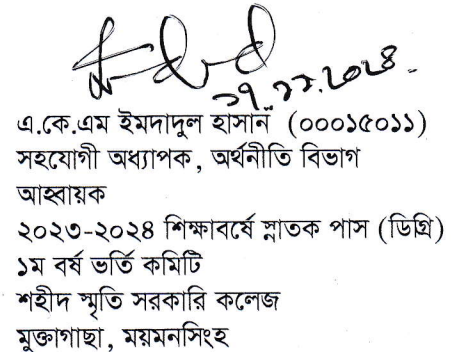 ২৭.১১.২০২৪
এ.কে.এম ইমদাদুল হাসান (০০০১৫০১১)
সহযোগী অধ্যাপক, অর্থনীতি বিভাগ
আহ্বায়ক
২০২৩-২০২৪ শিক্ষাবর্ষে স্নাতক পাস (ডিগ্রি)
১ম বর্ষ ভর্তি কমিটি
শহীদ স্মৃতি সরকারি কলেজ
মুক্তাগাছা, ময়মনসিংহ